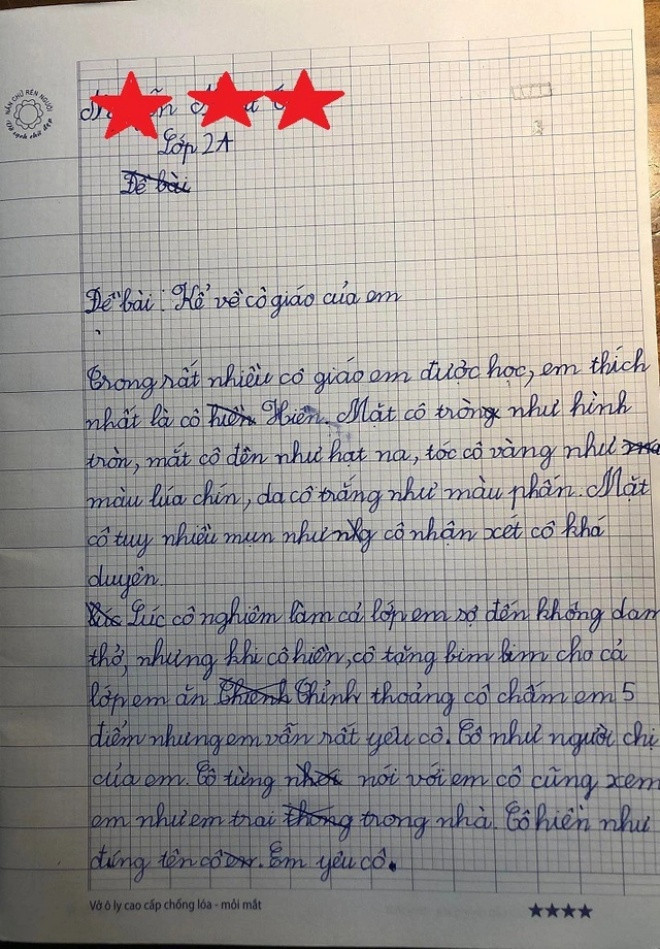 NẮN CHỮ RÈN NGƯỜI
Lớp 2A
Đề bài
Đề bài: Kể về cô giáo của em
Trong rất nhiều cô giáo em được học, em thích
nhất là cô hiền Hiền. Mặt cô tròng như hình
tròn, mắt cô đên như hạt na, tóc cô vàng như
màu lúa chín, da cô trắng như màu phấn. Mặt
cô tuy nhiều mụn như cô nhận xét cô khá
duyên.
Lúc cô nghiêm làm cả lớp em sợ đến không dam
thở, nhưng khi cô hiền, cô tặng bim bim cho cả
lớp em ăn Thỉnh thoảng cô chấm em 5
điểm nhưng em vẫn rất yêu cô. Cô như người chị
của em. Cô từng nói với em cô cũng xem
em như em trai thong trong nhà. Cô hiền như
đúng tên cô. Em yêu cô.
Vở ô ly cao cấp chống lóa - mỏi mắt